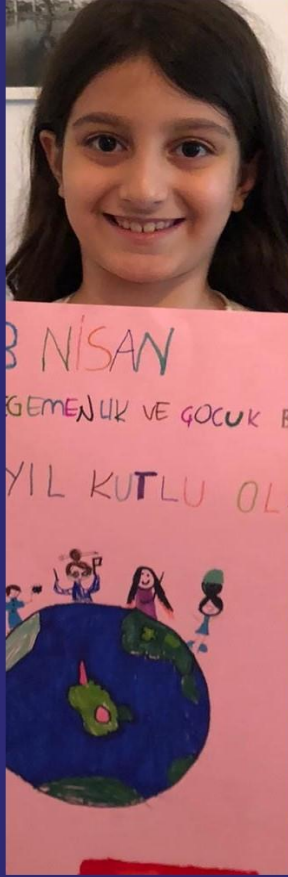 3 NİSAN
EGEMENLİK VE ÇOCUK B
YIL KUTLU OL